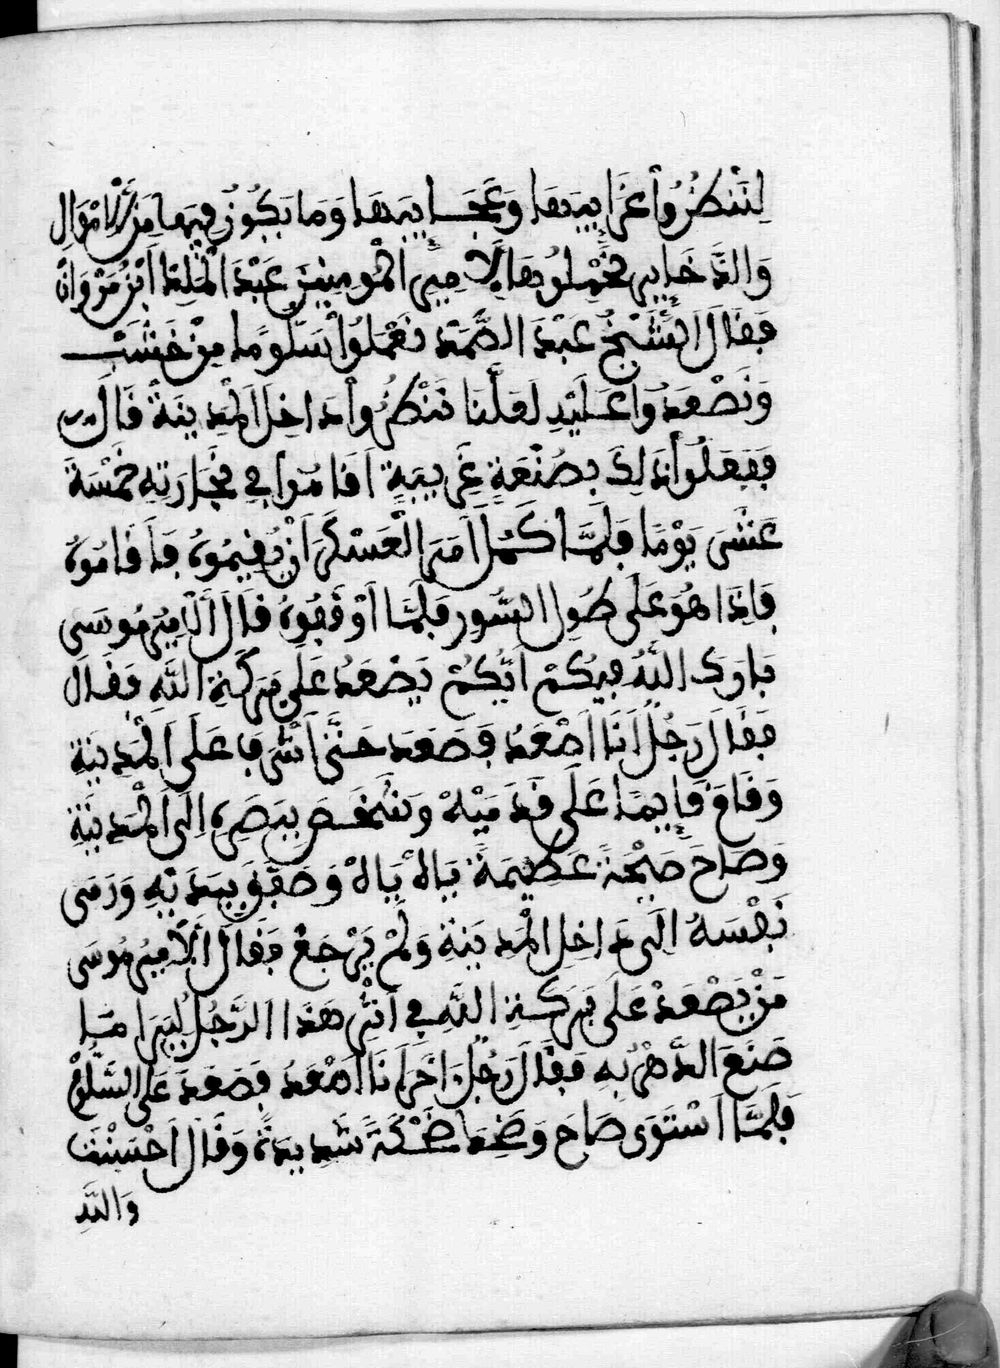 لِنَنْظُرُواْ غَرَايِبَهَا وَعَجَايِبَهَا وَمَا يَكُونُ فِيهَا مِنَ الَامْوَالِ
وَالذَّخَايِرِ نَحْمِلُوهَا لِاَمِيرِ الْمُومِنِينَ عَبْدَ الْمَلِك ابْنُ مَرْوَانْ
فَقَالَ الشَّيْخُ عَبْدَ الصَّمَدْ نَعْمَلُواْ سَلُّومًا مِنْ خَشَبْ
وَنَصْعَدُواْ عَلَيْهِ لَعَلَّنَا نَنْظُرُواْ دَاخِلَ الْمَدِينَةْ قَالَ
فَفَعَلُواْ ذَلِكَ بِصُنْعَةٍ غَرِيبَةٍ اَقَامُواْ فِي نِجَارَتِهِ خَمْسَةَ
عَشَرَ يَوْمًا فَلَمَّا كَمَلَ اَمَرَ الْعَسْكَرَ اَنْ يُقِيمُوهُ فَاَقَامُوهُ
فَاِذَا هُوَ عَلَى طُولِ السُّورِ فَلَمَّا اَوْقَفُوهُ قَالَ الَامِيرُ مُوسَى
بَارَكَ اللَّهُ فِيكُمْ اَيُّكُمْ يَصْعَدُ عَلَى بَرَكَةِ اللَّهِ فَقَالَ
فَقَالَ رَجُلٌ اَنَا اَصْعَدُ فَصَعَدَ حَتَّى اَشْرَفَ عَلَى الْمَدِينَةِ
وَقَامَ قَايِمًا عَلَى قَدَمَيْهْ وَشَخَصَ بِبَصَرِهِ اِلَى الْمَدِينَةِ
وَصَاحَ صَيْحَةً عَظِيمَةً يَاهْ يَاهْ وَصَفَّقَ بِيَدَيْهِ وَرَمَى
نَفْسَهُ اِلَى دَاخِلِ الْمَدِينَةِ وَلَمْ يَرْجَعْ فَقَالَ الَامِيرُ مُوسَى
مَنْ يَصْعَدْ عَلَى بَرَكَةِ اللَّهِ فِي اَثْرِ هَذَا الرَّجُلْ لِيَرَا مَا
صَنَعَ الدَّهْرُ بِهِ فَقَالَ رَجُلٌ اَخَرَ اَنَا اَصْعَدُ فَصَعَدَ عَلَى السَّلُّمْ
فَلَمَّا اسْتَوَى صَاحَ وَضَحِكَ ضَحْكَةً شَدِيدَةً وَقَالَ اَحْسَنْتَ
وَاللَّهِ